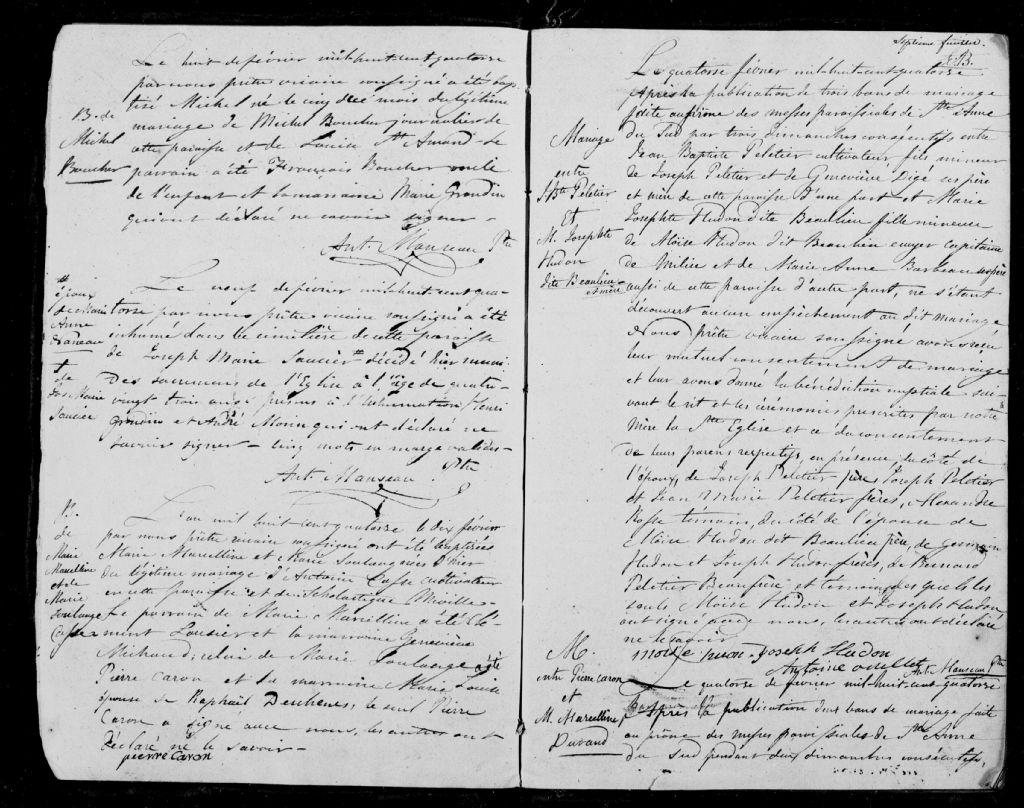 Le huit de février mil-huit-cent-quatorze
par nous prêtre vicaire soussigné a été bap
tisé Michel né le cinq du mois du légitime
B. de
Michel
Boucher
mariage de Michel Boucher journalier de
cette paroisse et de Louise St Amand le
parrain a été François Boucher oncle
de l'enfant et la marraine Marie Grondin
qui ont déclaré ne savoir signer -
Ant. Manseau Ptre
Le neuf de février mil-huit-cent-qua-
époux
de Marie
Anne
torze par nous prêtre vicaire soussigné a été
inhumé dans le cimetière de cette paroisse
S
de
Jos. Marie
Saucier
de Joseph Marie Saucier décédé hier muni
des sacremens de l'Eglise à l'âge de quatre-
vingt trois ans présens à l'inhumation Henri
Grondin et André Monnqui ont déclaré ne
savoir signer - cinq mots en marge valides -
Ant. Manseau Ptre
B.
de
Marie
Marcelline
et de
Marie
Soulange
Casse
L'an mil huit cent quatorze le dix février
par nous prêtre vicaire soussigné ont été baptisées
Marie Marcelline et Marie Soulange nées d'hier
du légitime mariage d'Antoine Casse cultivateur
en cette paroisse et de Scholastique Miville
Le parrain de Marie Marcelline a été Clé
ment Lousier et la marraine Geneviève
Michaud; celui de Marie Soulange a été
Pierre Caron et sa marraine Marie Louise
épouse de Raphaël Deschenes; le seul Pierre
Caron a signé avec nous, les autres ont
déclaré ne le savoir -
pierre Caron
Septieme feuillet.
Le quatorze février mil-huit-cent-quatorze
Après la publication de trois bans de mariage
faite au prône des messes paroissiales de Ste Anne
Mariage
entre
J. Bte Peletier
Et
M. Josephte
Hudon
dite Beaulieu
du Sud par trois dimanches consécutifs entre
Jean Baptiste Peletier cultivateur fils mineur
de Joseph Peletier et de Geneviève Digé ses père
et mère de cette paroisse d'une part et Marie
Josephte Hudon dite Beaulieu fille mineure
de Moïse Hudon dit Beaulieu ecuyer capitaine
de milice et de Marie Anne Barbeau ses père
et mère
aussi de cette paroisse d'autre part, ne s'étant
découvert aucun empêchement au dit mariage
Nous prêtre vicaire soussigné avons reçu
leur mutuel consentement de mariage
et leur avons donné la bénédiction nuptiale sui-
vant le rit et les cérémonies prescrites par notre
Mère la Ste Eglise et ce du consentement
de leurs parens respectifs, en présence, du côté de
l'époux, de Joseph Peletier père, Joseph Peletier
et Jean Marie Peletier frères, Alexandre
Rosse témoin, du côté de l'épouse de
Moïse Hudon dit Beaulieu père, de Germain
Hudon et Joseph Hudon frères, de Bernard
Peletier Beaufrère et témoins lesquels les
seuls Moïse Hudon et Joseph Hudon
ont signé avec nous, les autres ont déclaré
ne le savoir
moise hudon Joseph Hudon
Antoine ouellet Ant. Manseau Ptre
M.
entre Pierre Caron
et
M. Marcelline
Durand
Le quatorze de février mil-huit-cent-quatorze
Après la publication deux bans de mariage faite
au prône des messes paroissiales de Ste Anne
du sud pendant deux dimanches consécutifs,